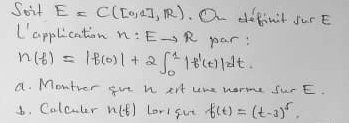 Soit E = C([0,1], ℝ). On définit sur E
L'application n : E → ℝ par :
n(f) = |f(0)| + 2 ∫₀¹ |f'(t)| dt.
a. Montrer que n est une norme sur E.
b. Calculer n(f) lorsque f(t) = (t-3)⁵.